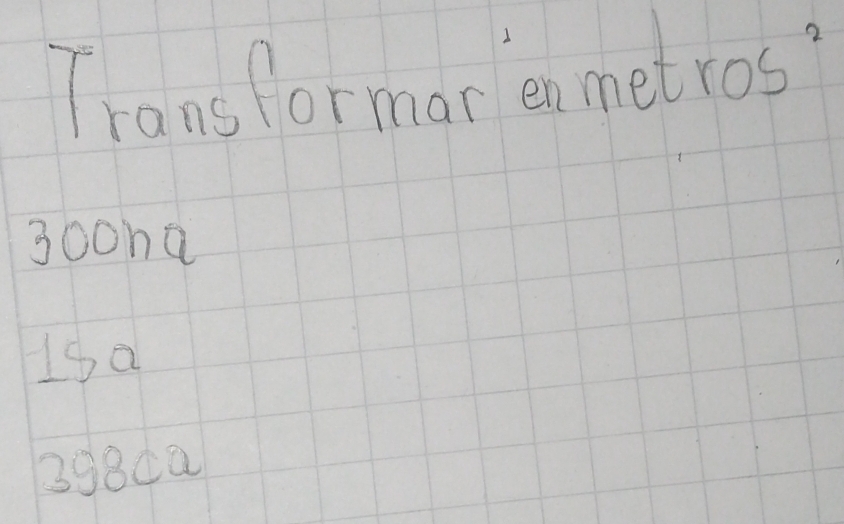 Transformar en metros²
300ha
15a
398ca